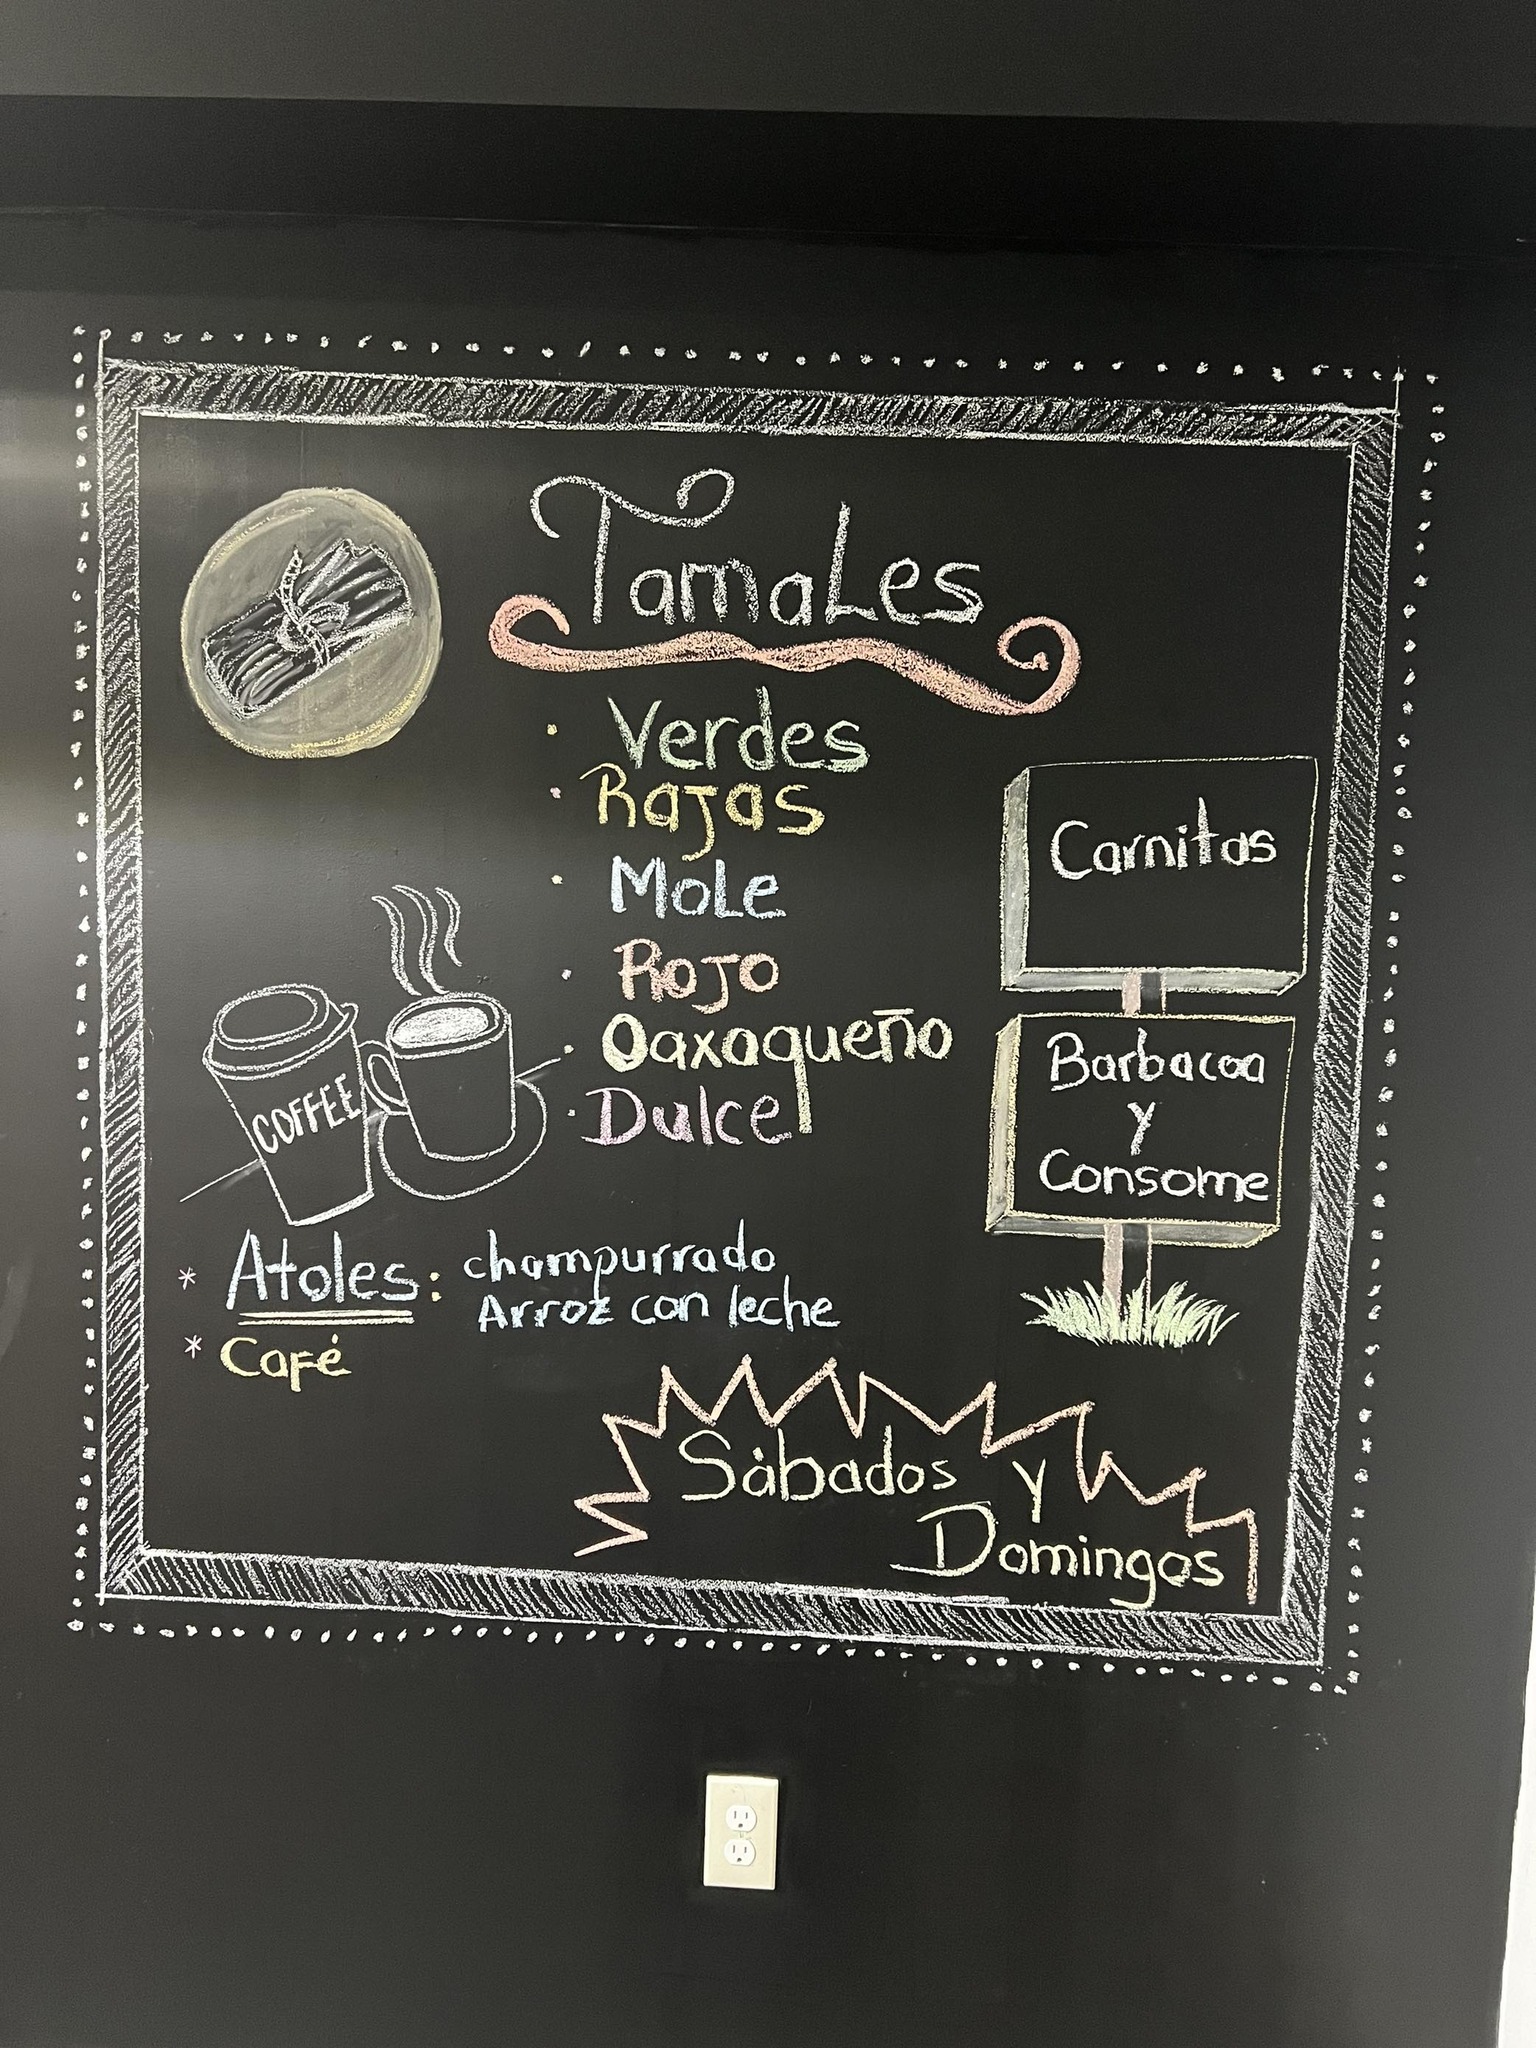 Tamales
· Verdes
· Rajas
· Mole
· Rojo
· Oaxaqueño
· Dulce
Carnitas
Barbacoa
y
Consome
COFFEE
* Atoles: champurrado
Arroz con leche
* Café
Sábados y
Domingos